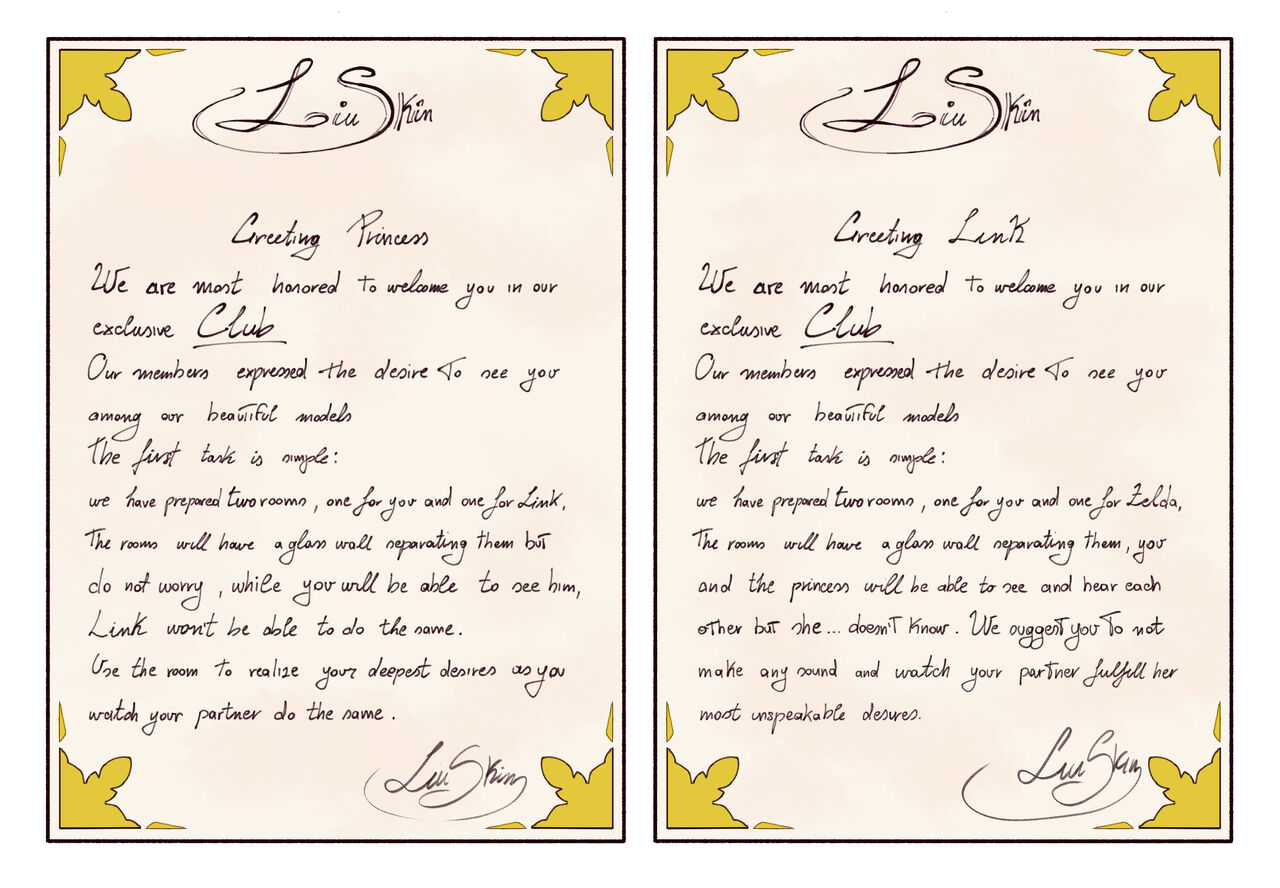 Liu Skin
Greeting Princess
We are most honored to welcome you in our
exclusive Club
Our members expressed the desire to see you
among our beautiful models
The first task is simple:
we have prepared two rooms, one for you and one for Link,
The rooms will have a glass wall separating them but
do not worry, while you will be able to see him,
Link won't be able to do the same.
Use the room to realize your deepest desires as you
watch your partner do the same.
Liu Skin
Liu Skin
Greeting Link
We are most honored to welcome you in our
exclusive Club
Our members expressed the desire to see you
among our beautiful models
The first task is simple:
we have prepared two rooms, one for you and one for Zelda,
The rooms will have a glass wall separating them, you
and the princess will be able to see and hear each
other but she... doesn't know. We suggest you to not
make any sound and watch your partner fulfill her
most unspeakable desires.
Liu Skin